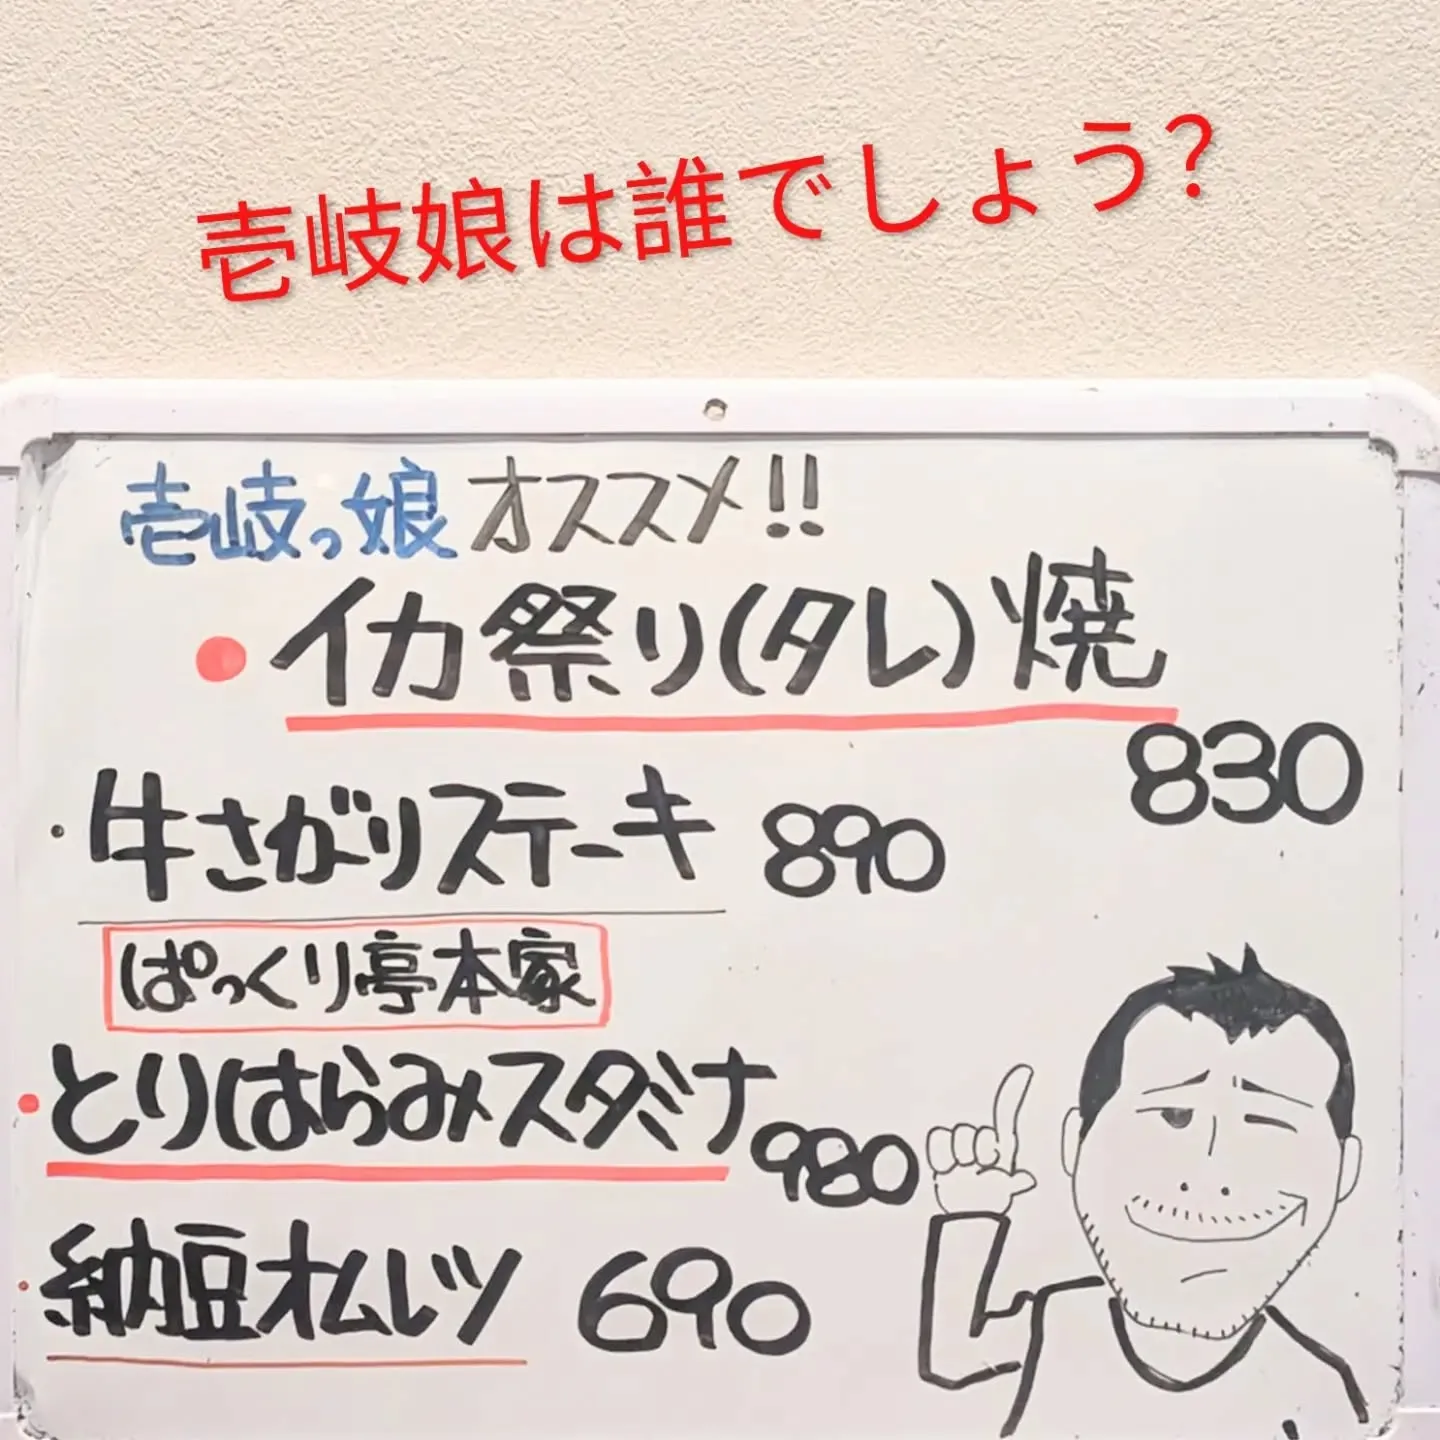 壱岐娘は誰でしょう？
壱岐っ娘オススメ!!
・イカ祭り(タレ)焼
830
・牛さがりステーキ 890
ぱっくり亭本家
・とりはらみスタミナ 980
・納豆オムレツ 690